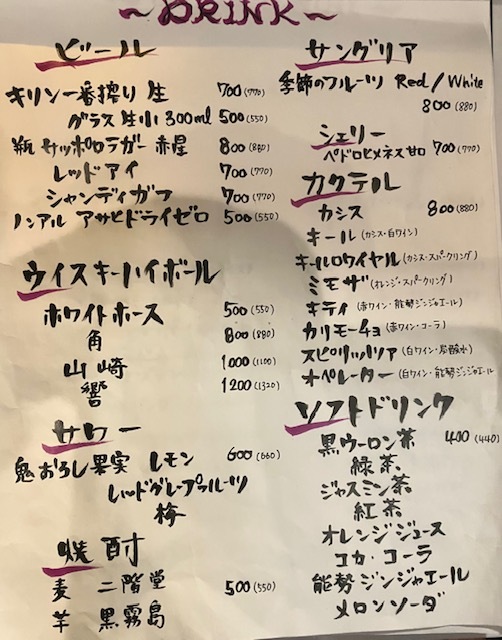 ～DRINK～
ビール
キリン一番搾り 生 700(770)
グラス 生小 300ml 500(550)
瓶 サッポロラガー 赤星 800(880)
レッドアイ 700(770)
シャンディガフ 700(770)
ノンアル アサヒドライゼロ 500(550)
ウイスキーハイボール
ホワイトホース 500(550)
角 800(880)
山崎 1000(1100)
響 1200(1320)
サワー
鬼おろし果実 レモン 600(660)
レッドグレープフルーツ
梅
焼酎
麦 二階堂 500(550)
芋 黒霧島
サングリア
季節のフルーツ Red/White
800(880)
シェリー
ペドロヒメネス甘口 700(770)
カクテル
カシス 800(880)
キール(カシス・白ワイン)
キールロワイヤル(カシス・スパークリング)
ミモザ(オレンジ・スパークリング)
キティ(赤ワイン・能勢ジンジャエール)
カリモーチョ(赤ワイン・コーラ)
スピリッツァ(白ワイン・炭酸水)
オペレーター(白ワイン・能勢ジンジャエール
ソフトドリンク
黒ウーロン茶 400(440)
緑茶
ジャスミン茶
紅茶
オレンジジュース
コカ・コーラ
能勢ジンジャエール
メロンソーダ